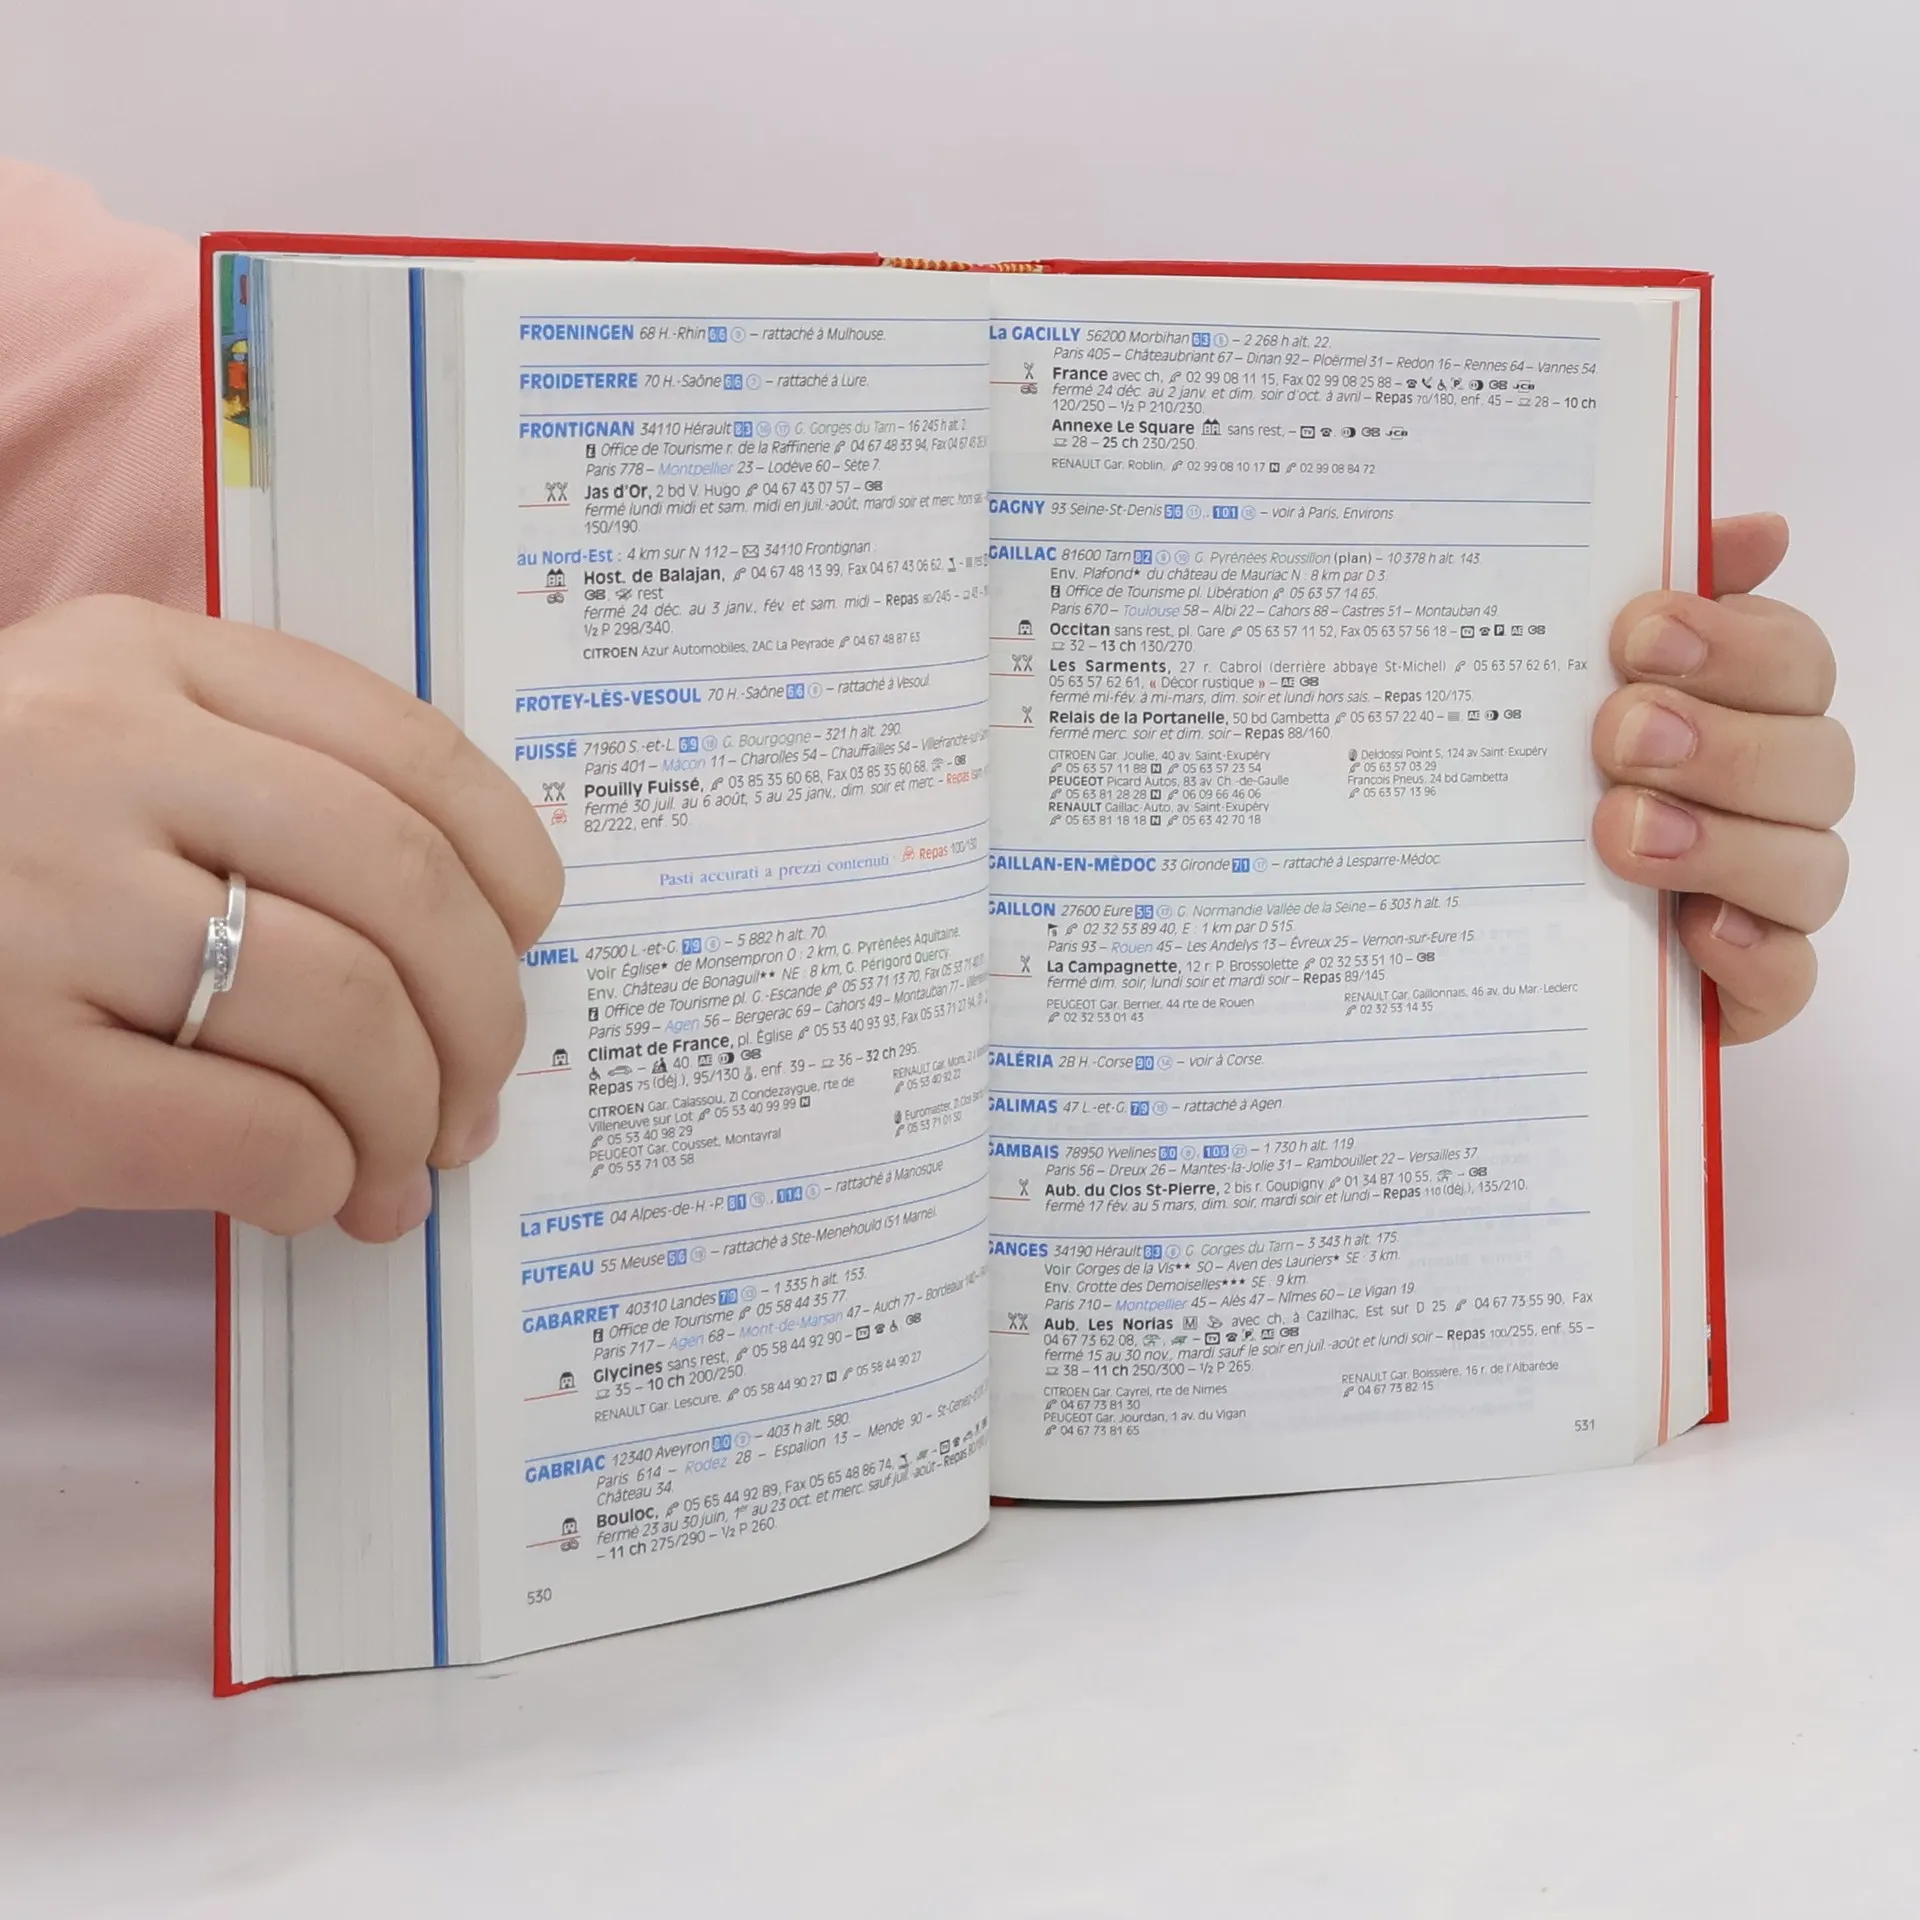 FROENINGEN 68 H.-Rhin 66 9 – rattaché à Mulhouse.
FROIDETERRE 70 H.-Saône 66 7 – rattaché à Lure.
FRONTIGNAN 34110 Hérault 83 16 17 G. Gorges du Tarn – 16 245 h alt. 2
Office de Tourisme r. de la Raffinerie 04 67 48 33 94, Fax 04 67 43
Paris 778 – Montpellier 23 – Lodève 60 – Sète 7.
Jas d'Or, 2 bd V. Hugo 04 67 43 07 57 – GB
fermé lundi midi et sam. midi en juil.-août, mardi soir et merc. hors sais.
150/190.
au Nord-Est : 4 km sur N 112 – 34110 Frontignan :
Host. de Balajan, 04 67 48 13 99, Fax 04 67 43 06 62,
GB. rest
fermé 24 déc. au 3 janv., fév. et sam. midi – Repas 80/245 –
½ P 298/340.
CITROEN Azur Automobiles, ZAC La Peyrade 04 67 48 87 63
FROTEY-LÈS-VESOUL 70 H.-Saône 66 6 – rattaché à Vesoul.
FUISSÉ 71960 S.-et-L. 69 19 G. Bourgogne – 321 h alt. 290.
Paris 401 – Mâcon 11 – Charolles 54 – Chauffailles 54 – Villefranche-sur-
Pouilly Fuissé, 03 85 35 60 68, Fax 03 85 35 60 68, – GB
fermé 30 juil. au 6 août, 5 au 25 janv., dim. soir et merc. – Repas
82/222, enf. 50.
Pasti accurati a prezzi contenuti Repas 100/130
UMEL 47500 L.-et-G. 79 6 – 5 882 h alt. 70.
Voir Église* de Monsempron O : 2 km, G. Pyrénées Aquitaine.
Env. Château de Bonaguil** NE : 8 km, G. Périgord Quercy.
Office de Tourisme pl. G.-Escande 05 53 71 13 70, Fax 05 53 71 40
Paris 599 – Agen 56 – Bergerac 69 – Cahors 49 – Montauban 77 –
Climat de France, pl. Église 05 53 40 93 93, Fax 05 53 71 27 94,
– 40. AE GB
Repas 75 (déj.), 95/130, enf. 39 – 36 – 32 ch 295.
CITROEN Gar. Calassou, ZI Condezaygue, rte de
Villeneuve sur Lot 05 53 40 99 99 N
05 53 40 98 29
PEUGEOT Gar. Cousset, Montayral
05 53 71 03 58
RENAULT Gar.
05 53 40 92 22
Euromaster,
05 53 71 01 50
La FUSTE 04 Alpes-de-H.-P. 81 15, 114 5 – rattaché à Manosque.
FUTEAU 55 Meuse 56 19 – rattaché à Ste-Menehould (51 Marne).
GABARRET 40310 Landes 79 13 – 1 335 h alt. 153.
Office de Tourisme 05 58 44 35 77.
Paris 717 – Agen 68 – Mont-de-Marsan 47 – Auch 77 – Bordeaux 140 –
Glycines sans rest, 05 58 44 92 90 – TV GB
35 – 10 ch 200/250.
RENAULT Gar. Lescure, 05 58 44 90 27 N 05 58 44 90 27
GABRIAC 12340 Aveyron 80 3 – 403 h alt. 580.
Paris 614 – Rodez 28 – Espalion 13 – Mende 90 –
Château 34.
Bouloc, 05 65 44 92 89, Fax 05 65 48 86 74,
fermé 23 au 30 juin, 1er au 23 oct. et merc. sauf juil.-août – Repas
– 11 ch 275/290 – ½ P 260.
530
La GACILLY 56200 Morbihan 63 5 – 2 268 h alt. 22.
Paris 405 – Châteaubriant 67 – Dinan 92 – Ploërmel 31 – Redon 16 – Rennes 64 – Vannes 54.
France avec ch, 02 99 08 11 15, Fax 02 99 08 25 88 – P GB JCB
fermé 24 déc. au 2 janv. et dim. soir d'oct. à avril – Repas 70/180, enf. 45 – 28 – 10 ch
120/250 – ½ P 210/230.
Annexe Le Square sans rest, – TV GB JCB
28 – 25 ch 230/250.
RENAULT Gar. Roblin, 02 99 08 10 17 N 02 99 08 84 72
GAGNY 93 Seine-St-Denis 56 11, 101 18 – voir à Paris, Environs.
GAILLAC 81600 Tarn 82 9 10 G. Pyrénées Roussillon (plan) – 10 378 h alt. 143.
Env. Plafond* du château de Mauriac N : 8 km par D 3.
Office de Tourisme pl. Libération 05 63 57 14 65.
Paris 670 – Toulouse 58 – Albi 22 – Cahors 88 – Castres 51 – Montauban 49.
Occitan sans rest, pl. Gare 05 63 57 11 52, Fax 05 63 57 56 18 – TV P AE GB
32 – 13 ch 130/270.
Les Sarments, 27 r. Cabrol (derrière abbaye St-Michel) 05 63 57 62 61, Fax
05 63 57 62 61, « Décor rustique » – AE GB
fermé mi-fév. à mi-mars, dim. soir et lundi hors sais. – Repas 120/175.
Relais de la Portanelle, 50 bd Gambetta 05 63 57 22 40 – AE GB
fermé merc. soir et dim. soir – Repas 88/160.
CITROEN Gar. Joulie, 40 av. Saint-Exupéry
05 63 57 11 88 N 05 63 57 23 54
PEUGEOT Picard Autos, 83 av. Ch.-de-Gaulle
05 63 81 28 28 N 06 09 66 46 06
RENAULT Gaillac-Auto, av. Saint-Exupéry
05 63 81 18 18 N 05 63 42 70 18
Deldossi Point S, 124 av Saint-Exupéry
05 63 57 03 29
François Pneus, 24 bd Gambetta
05 63 57 13 96
GAILLAN-EN-MÉDOC 33 Gironde 71 17 – rattaché à Lesparre-Médoc.
GAILLON 27600 Eure 55 17 G. Normandie Vallée de la Seine – 6 303 h alt. 15.
02 32 53 89 40, E : 1 km par D 515.
Paris 93 – Rouen 45 – Les Andelys 13 – Évreux 25 – Vernon-sur-Eure 15.
La Campagnette, 12 r. P. Brossolette 02 32 53 51 10 – GB
fermé dim. soir, lundi soir et mardi soir – Repas 89/145
PEUGEOT Gar. Bernier, 44 rte de Rouen
02 32 53 01 43
RENAULT Gar. Gaillonnais, 46 av. du Mar.-Leclerc
02 32 53 14 35
GALÉRIA 2B H.-Corse 90 14 – voir à Corse.
GALIMAS 47 L.-et-G. 79 15 – rattaché à Agen.
GAMBAIS 78950 Yvelines 60 8, 106 27 – 1 730 h alt. 119.
Paris 56 – Dreux 26 – Mantes-la-Jolie 31 – Rambouillet 22 – Versailles 37.
Aub. du Clos St-Pierre, 2 bis r. Goupigny 01 34 87 10 55, – GB
fermé 17 fév. au 5 mars, dim. soir, mardi soir et lundi – Repas 110 (déj.), 135/210.
GANGES 34190 Hérault 83 6 G. Gorges du Tarn – 3 343 h alt. 175.
Voir Gorges de la Vis** SO – Aven des Lauriers* SE : 3 km.
Env. Grotte des Demoiselles*** SE : 9 km.
Paris 710 – Montpellier 45 – Alès 47 – Nîmes 60 – Le Vigan 19.
Aub. Les Norias M avec ch, à Cazilhac, Est sur D 25 04 67 73 55 90, Fax
04 67 73 62 08, – TV P AE GB
fermé 15 au 30 nov., mardi sauf le soir en juil.-août et lundi soir – Repas 100/255, enf. 55 –
38 – 11 ch 250/300 – ½ P 265.
CITROEN Gar. Cayrel, rte de Nimes
04 67 73 81 30
PEUGEOT Gar. Jourdan, 1 av. du Vigan
04 67 73 81 65
RENAULT Gar. Boissière, 16 r. de l'Albarède
04 67 73 82 15
531